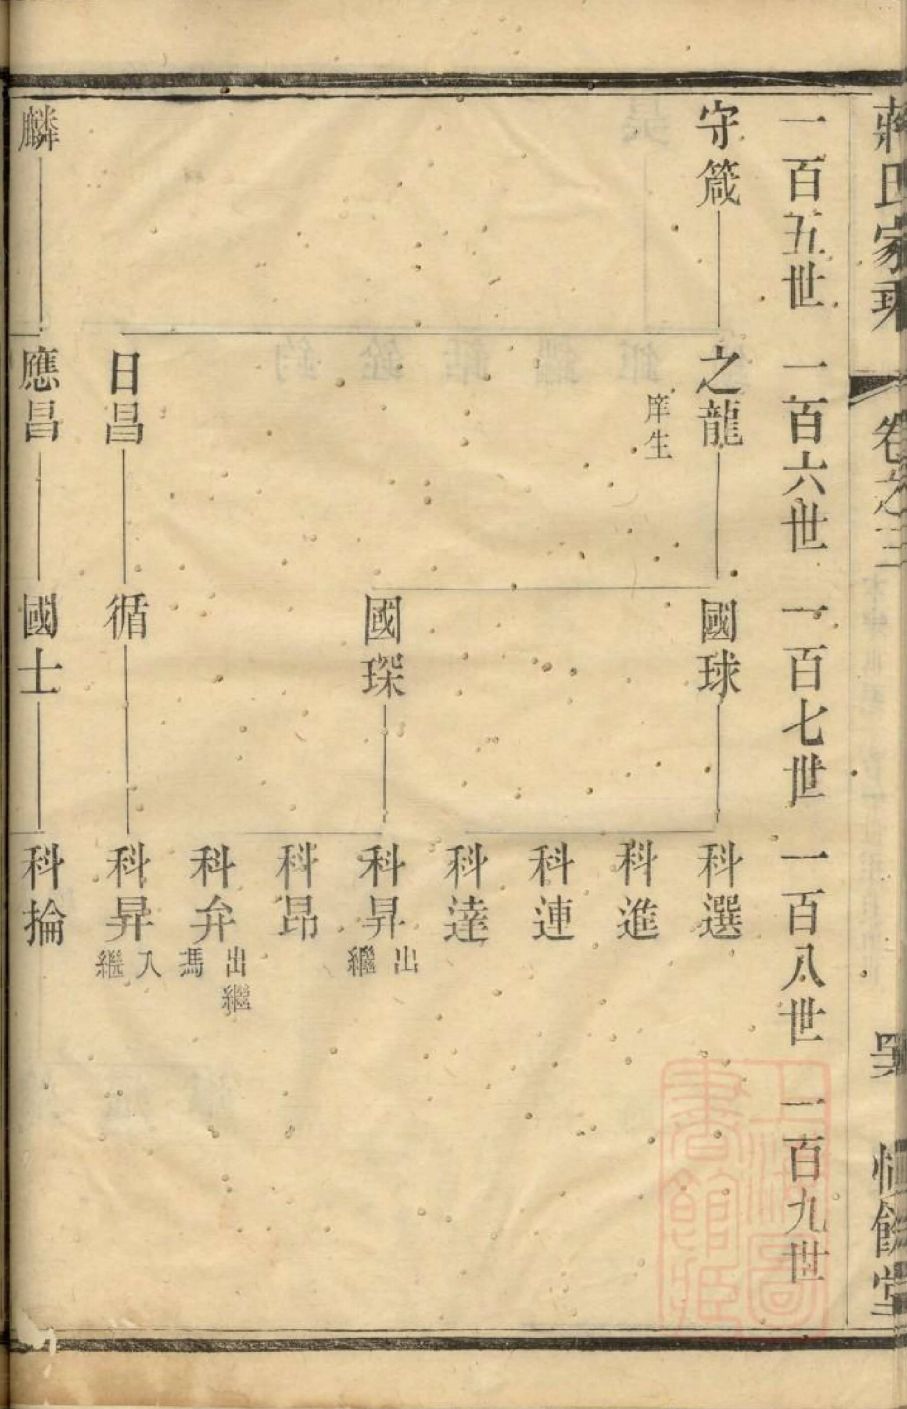 蔣氏家乘
卷之三
一百五世 一百六世 一百七世 一百八世 一百九世
守箴
之龍
庠生
國球
科選
科進
科連
科達
國琛
科昇
出繼
科昂
科弁
出繼
馮
日昌
循
科昇
入繼
麟
應昌
國士
科掄
上海圖書館藏